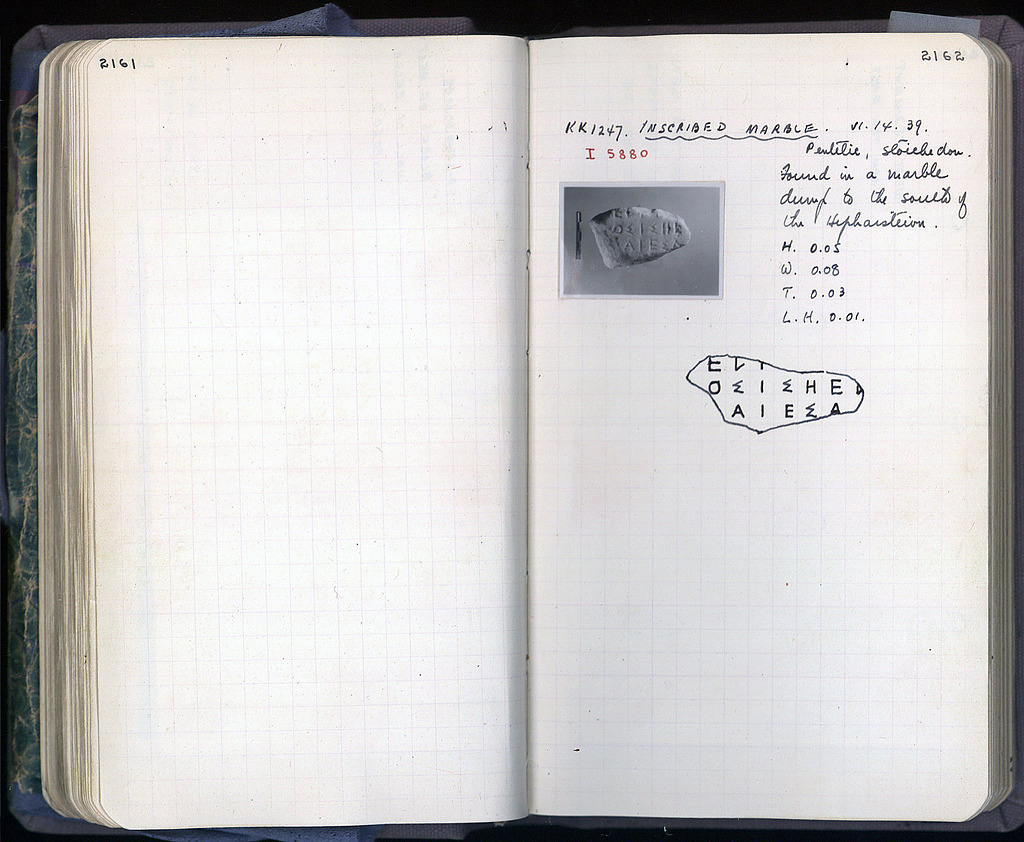 2161
2162
KK1247. INSCRIBED MARBLE. VI. 14. 39.
I 5880
Pentelic, stoichedon.
Found in a marble
dump to the south of
the Hephaisteion.
H. 0.05
W. 0.08
T. 0.03
L. H. 0.01.
Ε
Ο Σ Ι Σ Η Ε
Α Ι Ε Σ Α